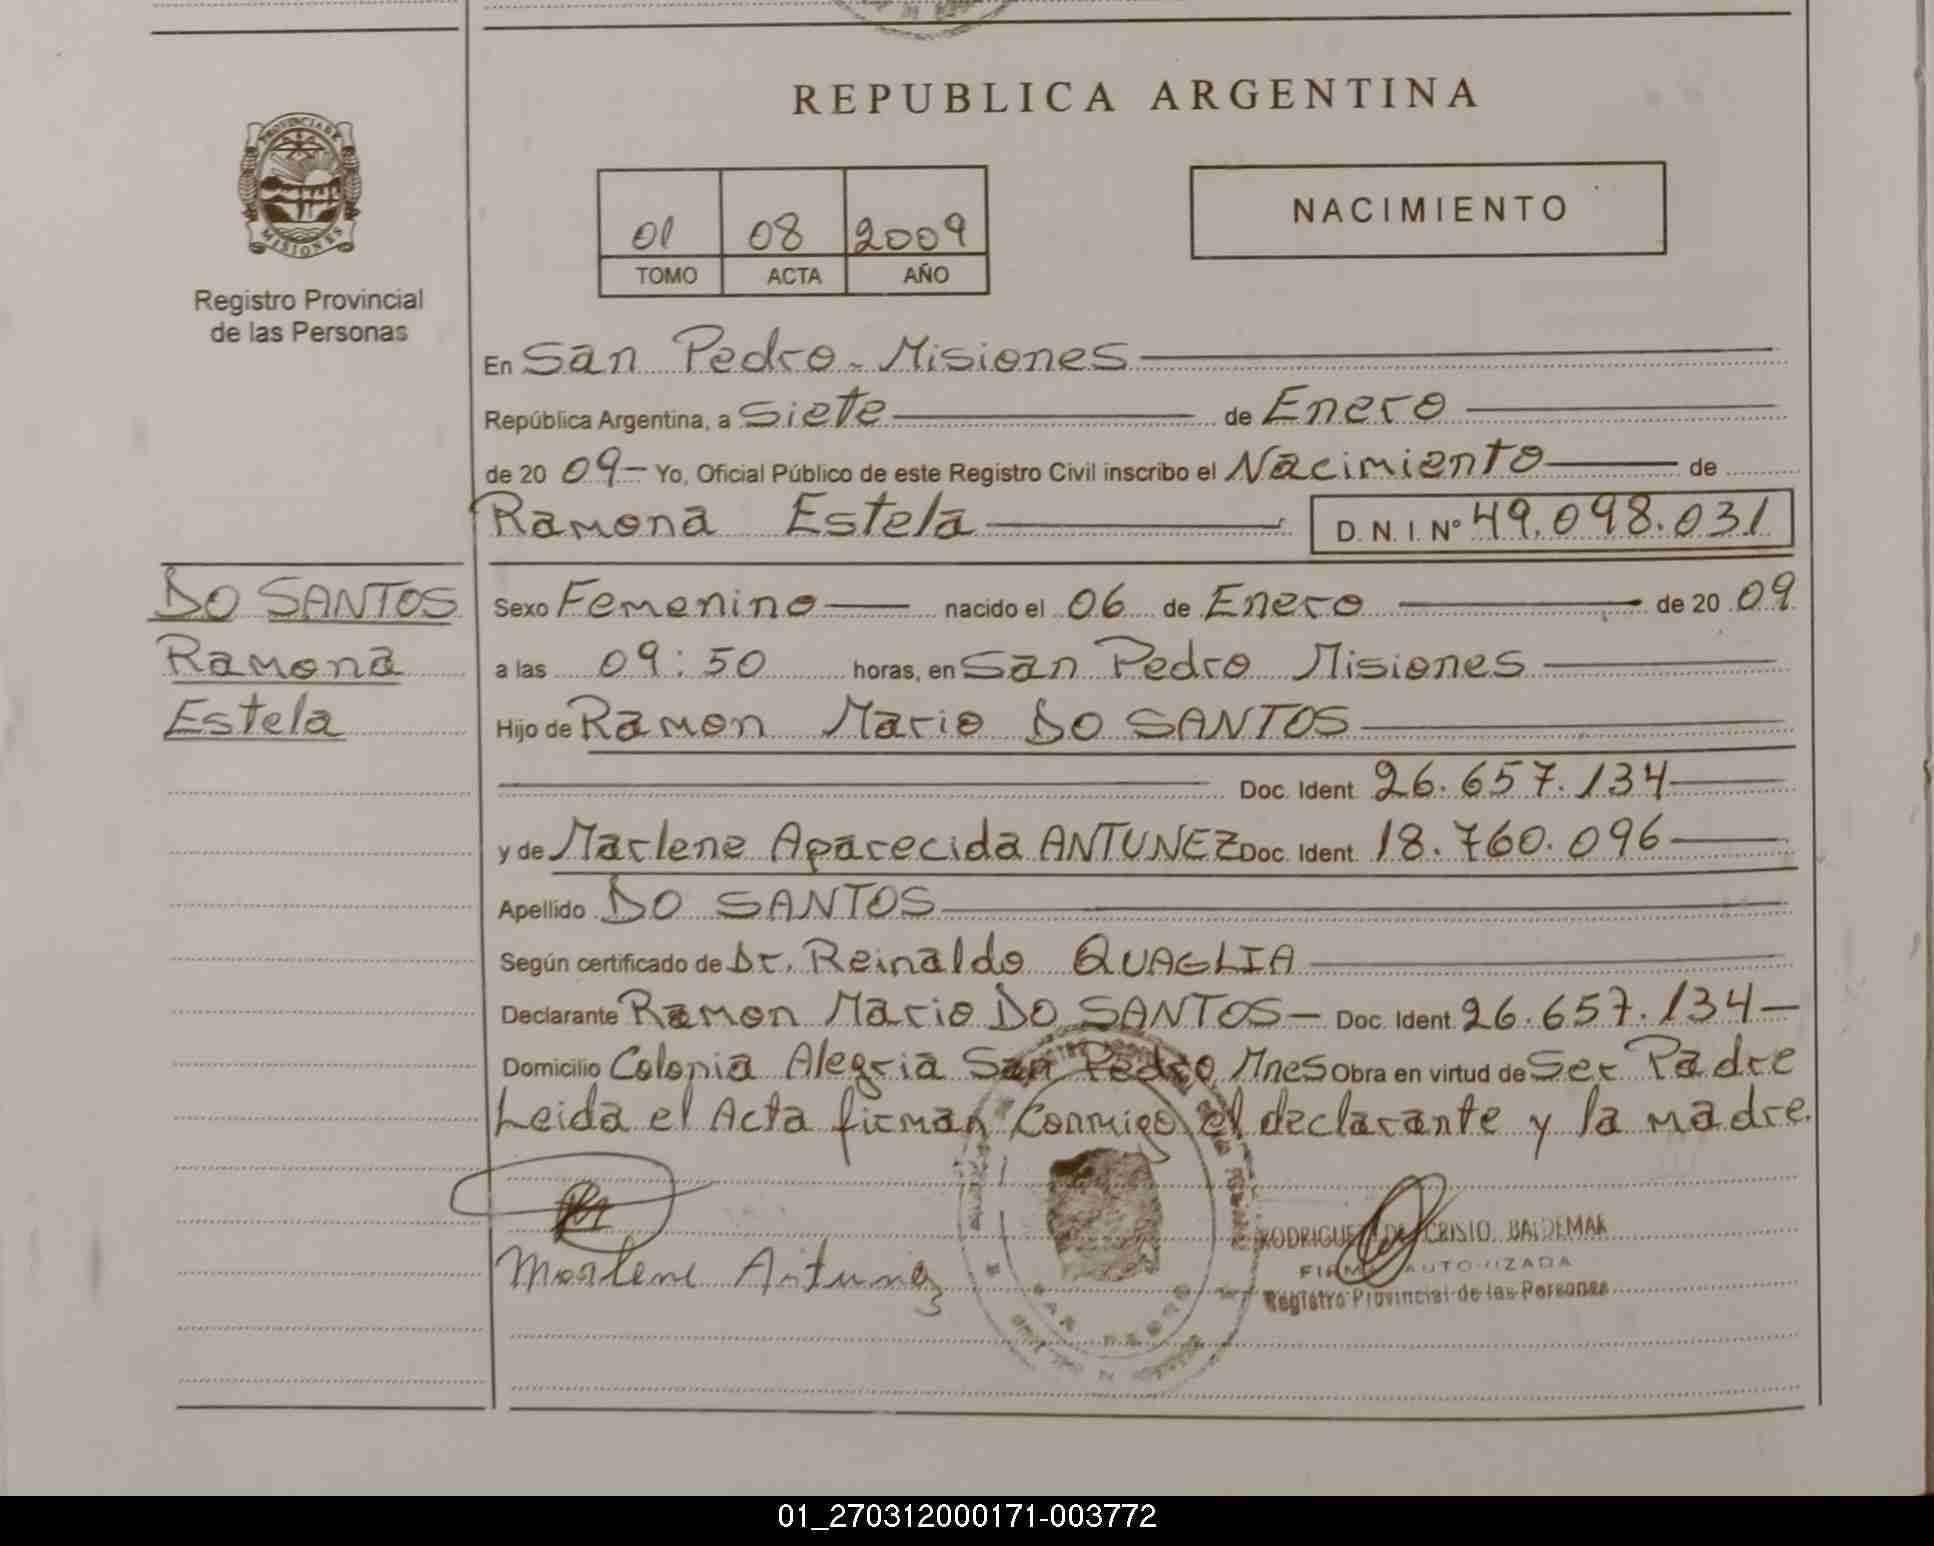 REPUBLICA ARGENTINA
PROVINCIA DE
MISIONES
Registro Provincial
de las Personas
01 08 2009
TOMO ACTA AÑO
NACIMIENTO
En San Pedro - Misiones
República Argentina, a Siete de Enero
de 20 09- Yo, Oficial Público de este Registro Civil inscribo el Nacimiento de
Ramona Estela D. N. I. Nº 49.098.031
DO SANTOS
Ramona
Estela
Sexo Femenino nacido el 06 de Enero de 20 09
a las 09:50 horas, en San Pedro Misiones
Hijo de Ramon Mario DO SANTOS
Doc. Ident. 26.657.134
y de Marlene Aparecida ANTUNEZ Doc. Ident. 18.760.096
Apellido DO SANTOS
Según certificado de Dr. Reinaldo QUAGLIA
Declarante Ramon Mario DO SANTOS - Doc. Ident. 26.657.134-
Domicilio Colonia Alegria San Pedro Mnes Obra en virtud de Ser Padre
Leida el Acta firman Conmigo el declarante y la madre.
Marlene Antunez
RODRIGUEZ DE CRISTO BALDEMAR
FIRMA AUTORIZADA
Registro Provincial de las Personas
SAN PEDRO
01_270312000171-003772